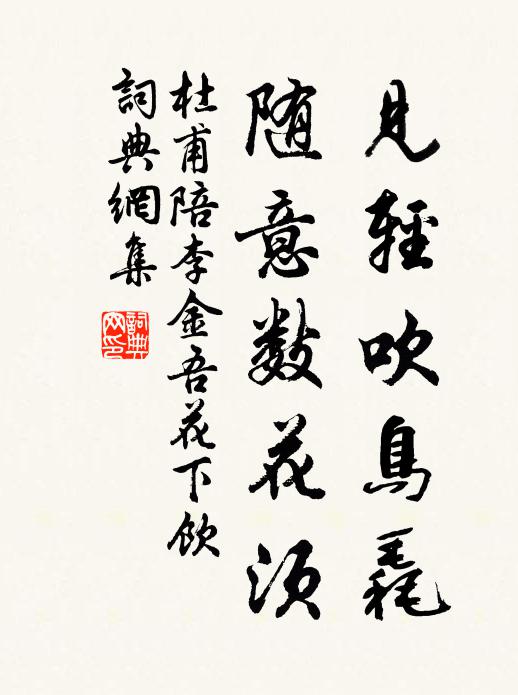 見輕吹鳥毳
随意數花須
杜甫陪李金吾花下飲
詞典網集
詞典
网印